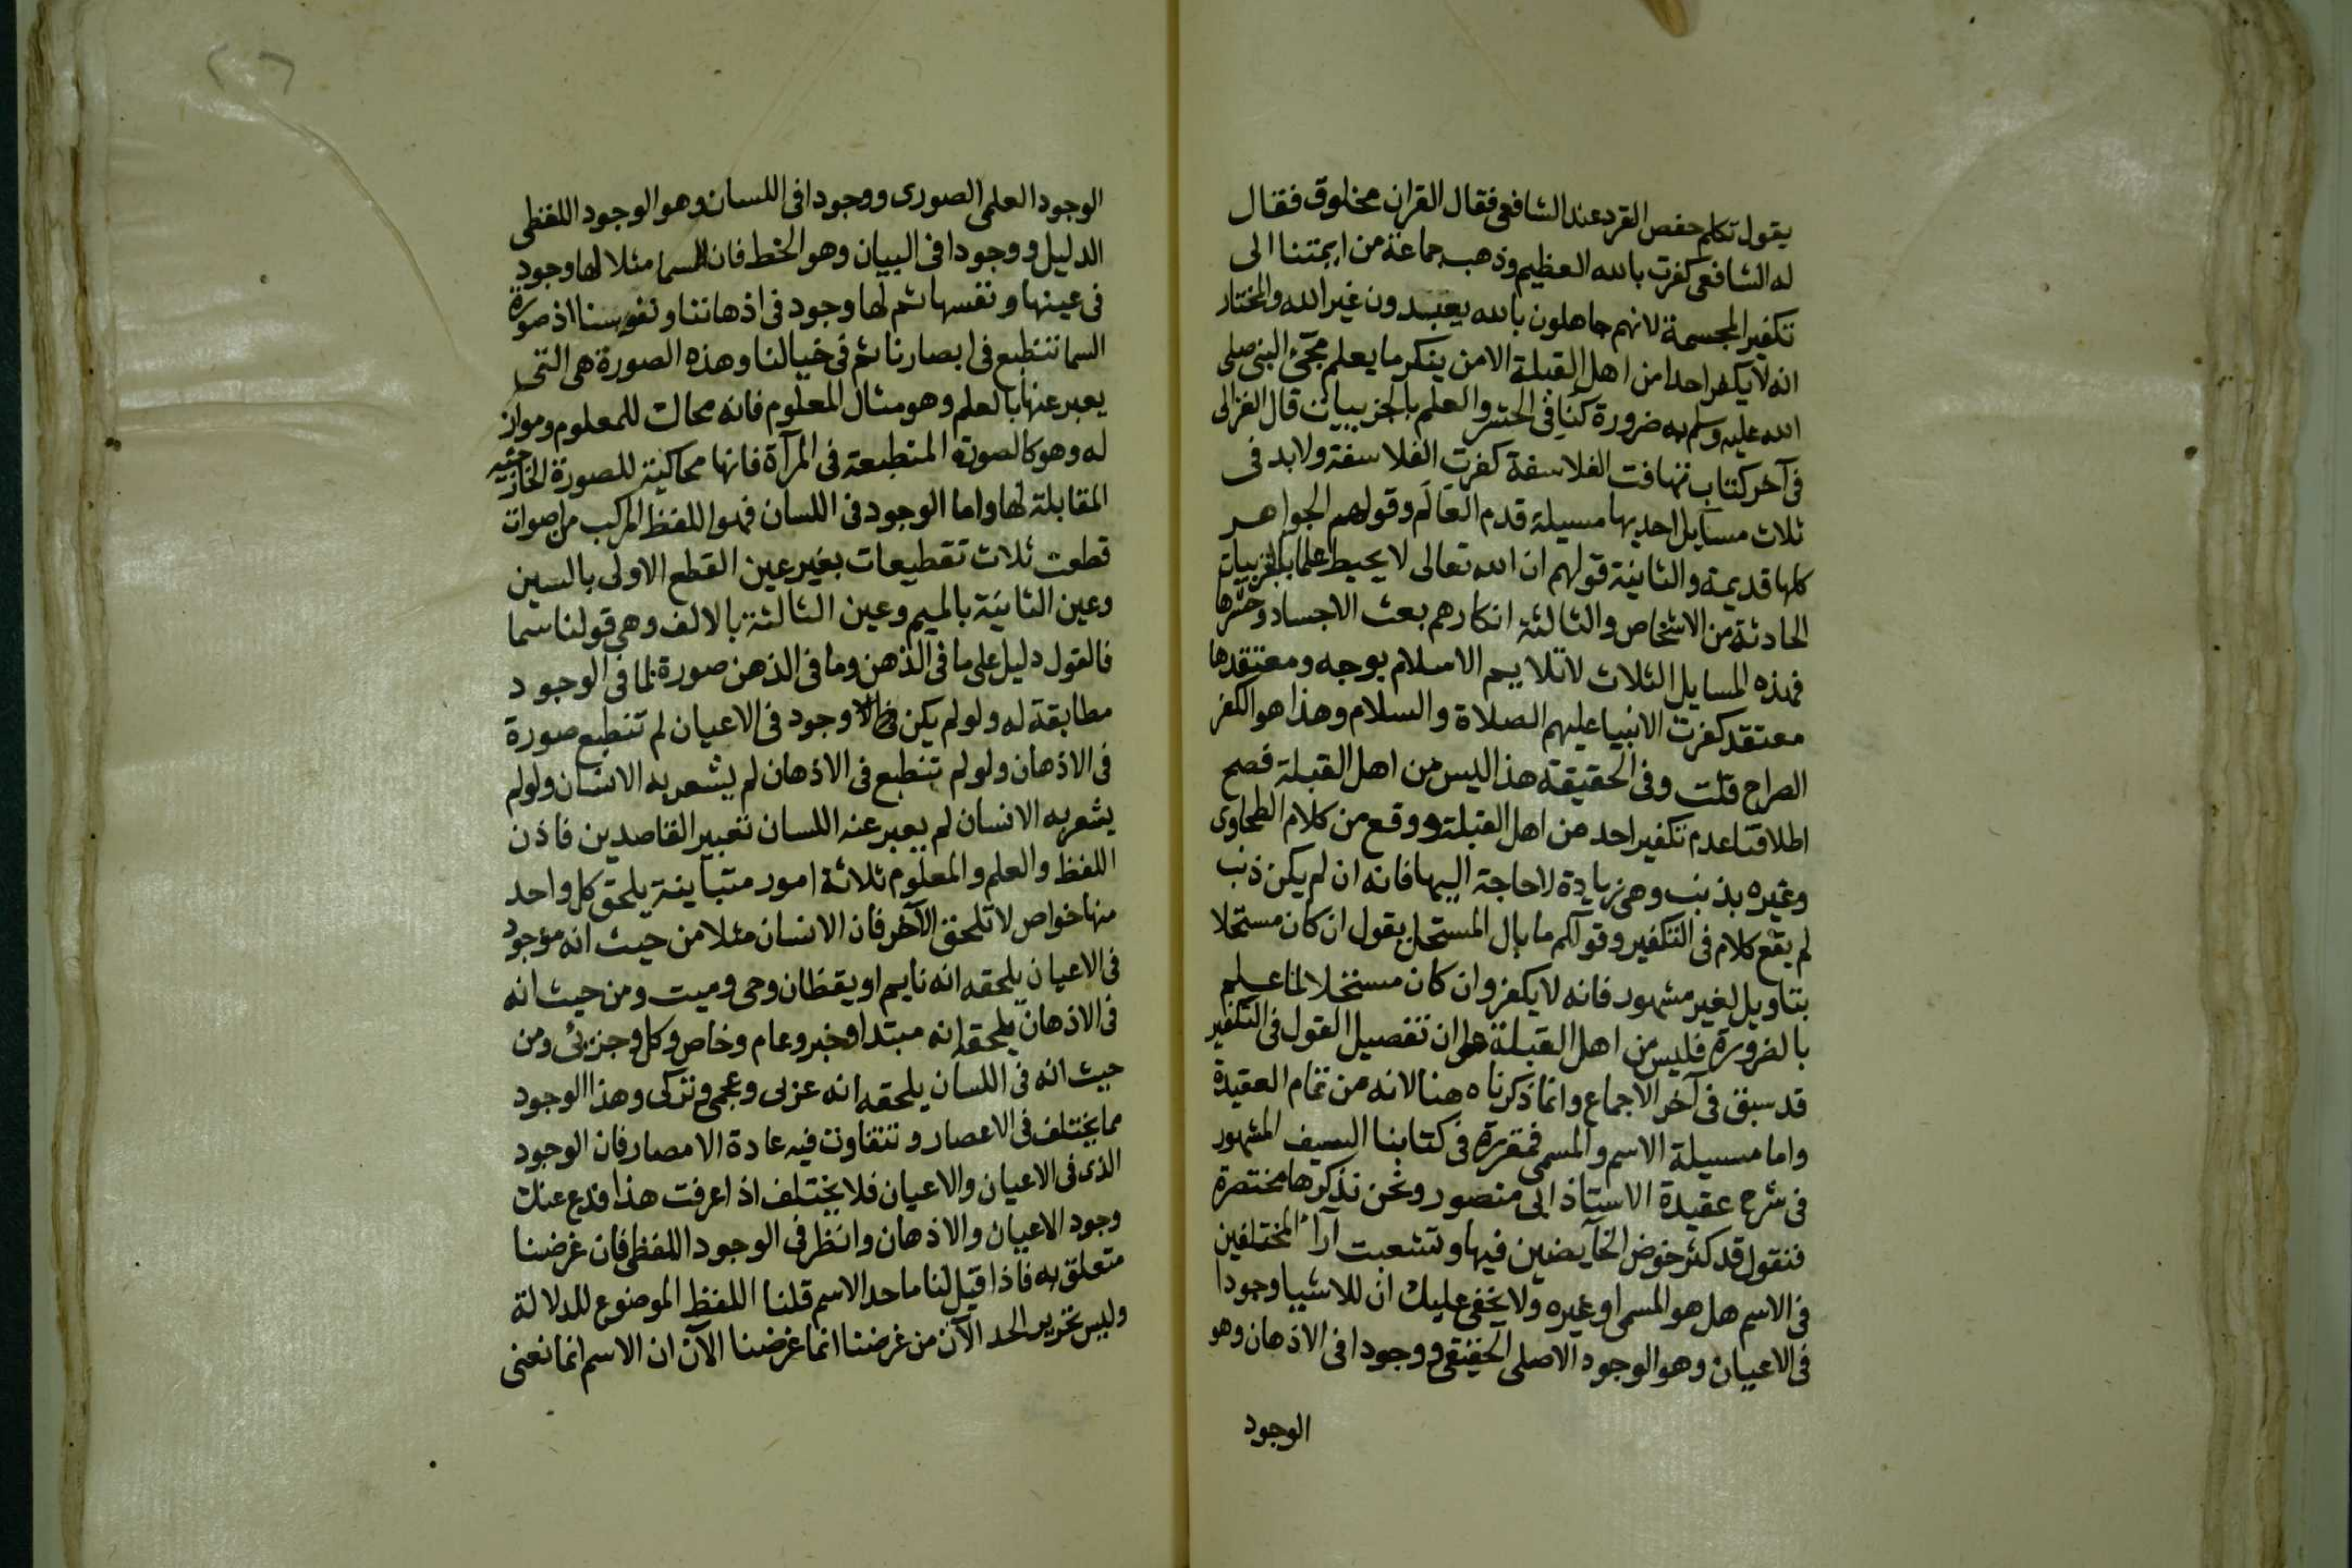 يقول تكلم حفص القرد عند الشافعى فقال القران مخلوق فقال
له الشافعى كفرت بالله العظيم وذهب جماعة من ايمتنا الى
تكفير المجسمة لانهم جاهلون بالله يعبدون غير الله والمختار
انه لا يكفر احدا من اهل القبلة الا من ينكر ما يعلم مجىء النبى صلى
الله عليه وسلم به ضرورة كنافى الحشر والعلم بالجزييات قال الغزالى
فى آخر كتاب تهافت الفلاسفة كفرت الفلاسفة ولابد فى
ثلاث مسايل احديها مسيلة قدم العالم وقولهم الجواهر
كلها قديمة والثانية قولهم ان الله تعالى لا يحيط علما بالجزييات
الحادثة من الاشخاص والثالثة انكارهم بعث الاجساد وحشرها
فهذه المسايل الثلاث لا تلايم الاسلام بوجه ومعتقدها
معتقد كفرت الانبيا عليهم الصلاة والسلام وهذا هو الكفر
الصراح قلت وفى الحقيقة هذا ليس من اهل القبلة فصح
اطلاقنا عدم تكفير احد من اهل القبلة ووقع من كلام الطحاوى
وغيره بذنب وهى زيادة لا حاجة اليها فانه ان لم يكن ذنب
لم يقع كلام فى التكفير وقولكم ما بال المستحل يقول ان كان مستحلا
بتاويل لغير مشهور فانه لا يكفر وان كان مستحلا لما علم
بالضرورة فليس من اهل القبلة على ان تفصيل القول فى التكفير
قد سبق فى آخر الاجماع وانما ذكرناه هنا لانه من تمام العقيدة
واما مسيلة الاسم والمسمى فمقررة فى كتابنا السيف المشهور
فى شرح عقيدة الاستاذ ابى منصور ونحن نذكرها مختصرة
فنقول قد كثر خوض الخايضين فيها وتشعبت آراء المختلفين
فى الاسم هل هو المسمى او غيره ولا يخفى عليك ان للاشيا وجودا
فى الاعيان وهو الوجود الاصلى الحقيقى ووجودا فى الاذهان وهو
الوجود
الوجود العلمى الصورى ووجودا فى اللسان وهو الوجود اللفظى
الدليل ووجودا فى البيان وهو الخط فان السما مثلا لها وجود
فى عينها ونفسها ثم لها وجود فى اذهاننا ونفوسنا اذ صورة
السما تنطبع فى ابصارنا ثم فى خيالنا وهذه الصورة هى التى
يعبر عنها بالعلم وهو مثال المعلوم فانه محاك للمعلوم ومواز
له وهو كالصورة المنطبعة فى المرآة فانها محاكية للصورة الخارجية
المقابلة لها واما الوجود فى اللسان فهو اللفظ المركب من اصوات
قطعت ثلاث تقطيعات بغير عين القطع الاولى بالسين
وعين الثانية بالميم وعين الثالثة بالالف وهى قولنا سما
فالقول دليل على ما فى الذهن وما فى الذهن صورة لما فى الوجود
مطابقة له ولو لم يكن وجود فى الاعيان لم تنطبع صورة
فى الاذهان ولو لم تنطبع فى الاذهان لم يشعر به الانسان ولو لم
يشعر به الانسان لم يعبر عنه اللسان تعبير القاصدين فاذن
اللفظ والعلم والمعلوم ثلاثة امور متباينة يلحق كل واحد
منها خواص لا تلحق الآخر فان الانسان مثلا من حيث انه موجود
فى الاعيان يلحقه انه نايم او يقظان وحى وميت ومن حيث انه
فى الاذهان يلحقه انه مبتدا وخبر وعام وخاص وكل وجزيئى ومن
حيث انه فى اللسان يلحقه انه عربى وعجمى وتركى وهذا الوجود
مما يختلف فى الاعصار وتتفاوت فيه عادة الامصار فان الوجود
الذى فى الاعيان والاعيان فلا يختلف اذا عرفت هذا فدع عنك
وجود الاعيان والاذهان وانظر فى الوجود اللفظى فان غرضنا
متعلق به فاذا قيل لنا ما حد الاسم قلنا اللفظ الموضوع للدلالة
وليس تحرير الحد الآن من غرضنا انما غرضنا الآن ان الاسم انما نعنى